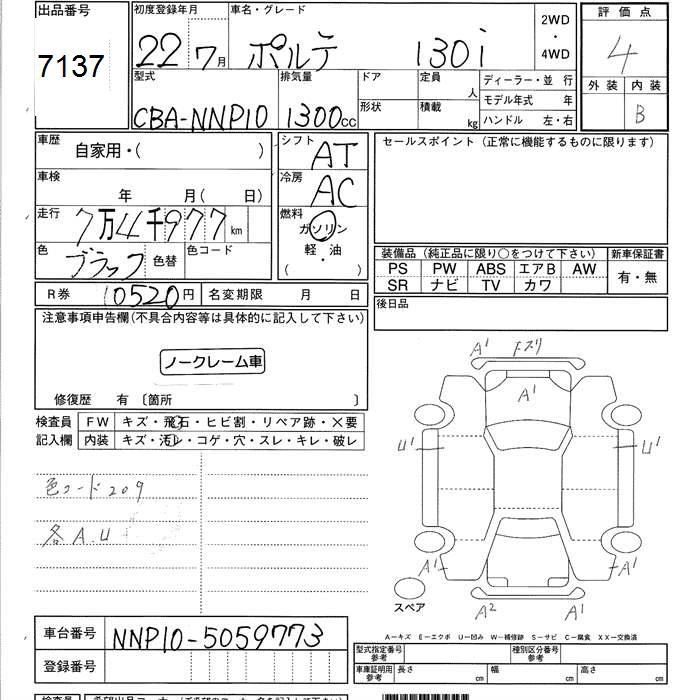 出品番号 初度登録年月 車名・グレード 2WD 評価点
7137 22 7月 ポルテ 130i ・ 4WD 4
型式 排気量 ドア 定員 人 ディーラー・並行 外装 内装
CBA-NNP10 1300cc 形状 積載 kg モデル年式 年 B
ハンドル 左・右
車歴 自家用・( ) シフト AT セールスポイント (正常に機能するものに限ります)
車検 年 月( 日) 冷房 AC
走行 7万4千977km 燃料 ガソリン
色 ブラック 色替 色コード 軽・油 装備品 (純正品に限り○をつけて下さい) 新車保証書
( ・ ) PS PW ABS エアB AW 有・無
R券 10520円 名変期限 月 日 SR ナビ TV カワ
注意事項申告欄(不具合内容等は具体的に記入して下さい) 後日品
ノークレーム車
修復歴 有 〔箇所 〕
検査員 FW キズ・飛石・ヒビ割・リペア跡・×要
記入欄 内装 キズ・汚レ・コゲ・穴・スレ・キレ・破レ
A1
A1
U1 U1
色コード209
各A.U
A1 A1
スペア
A2 A1
車台番号 NNP10-5059773
A-キズ E-エクボ U-凹み W-補修跡 S-サビ C-腐食 XX-交換済
登録番号 型式指定番号 参考 種別区分番号 参考
車庫証明用 参考 長さ cm 幅 cm 高さ cm